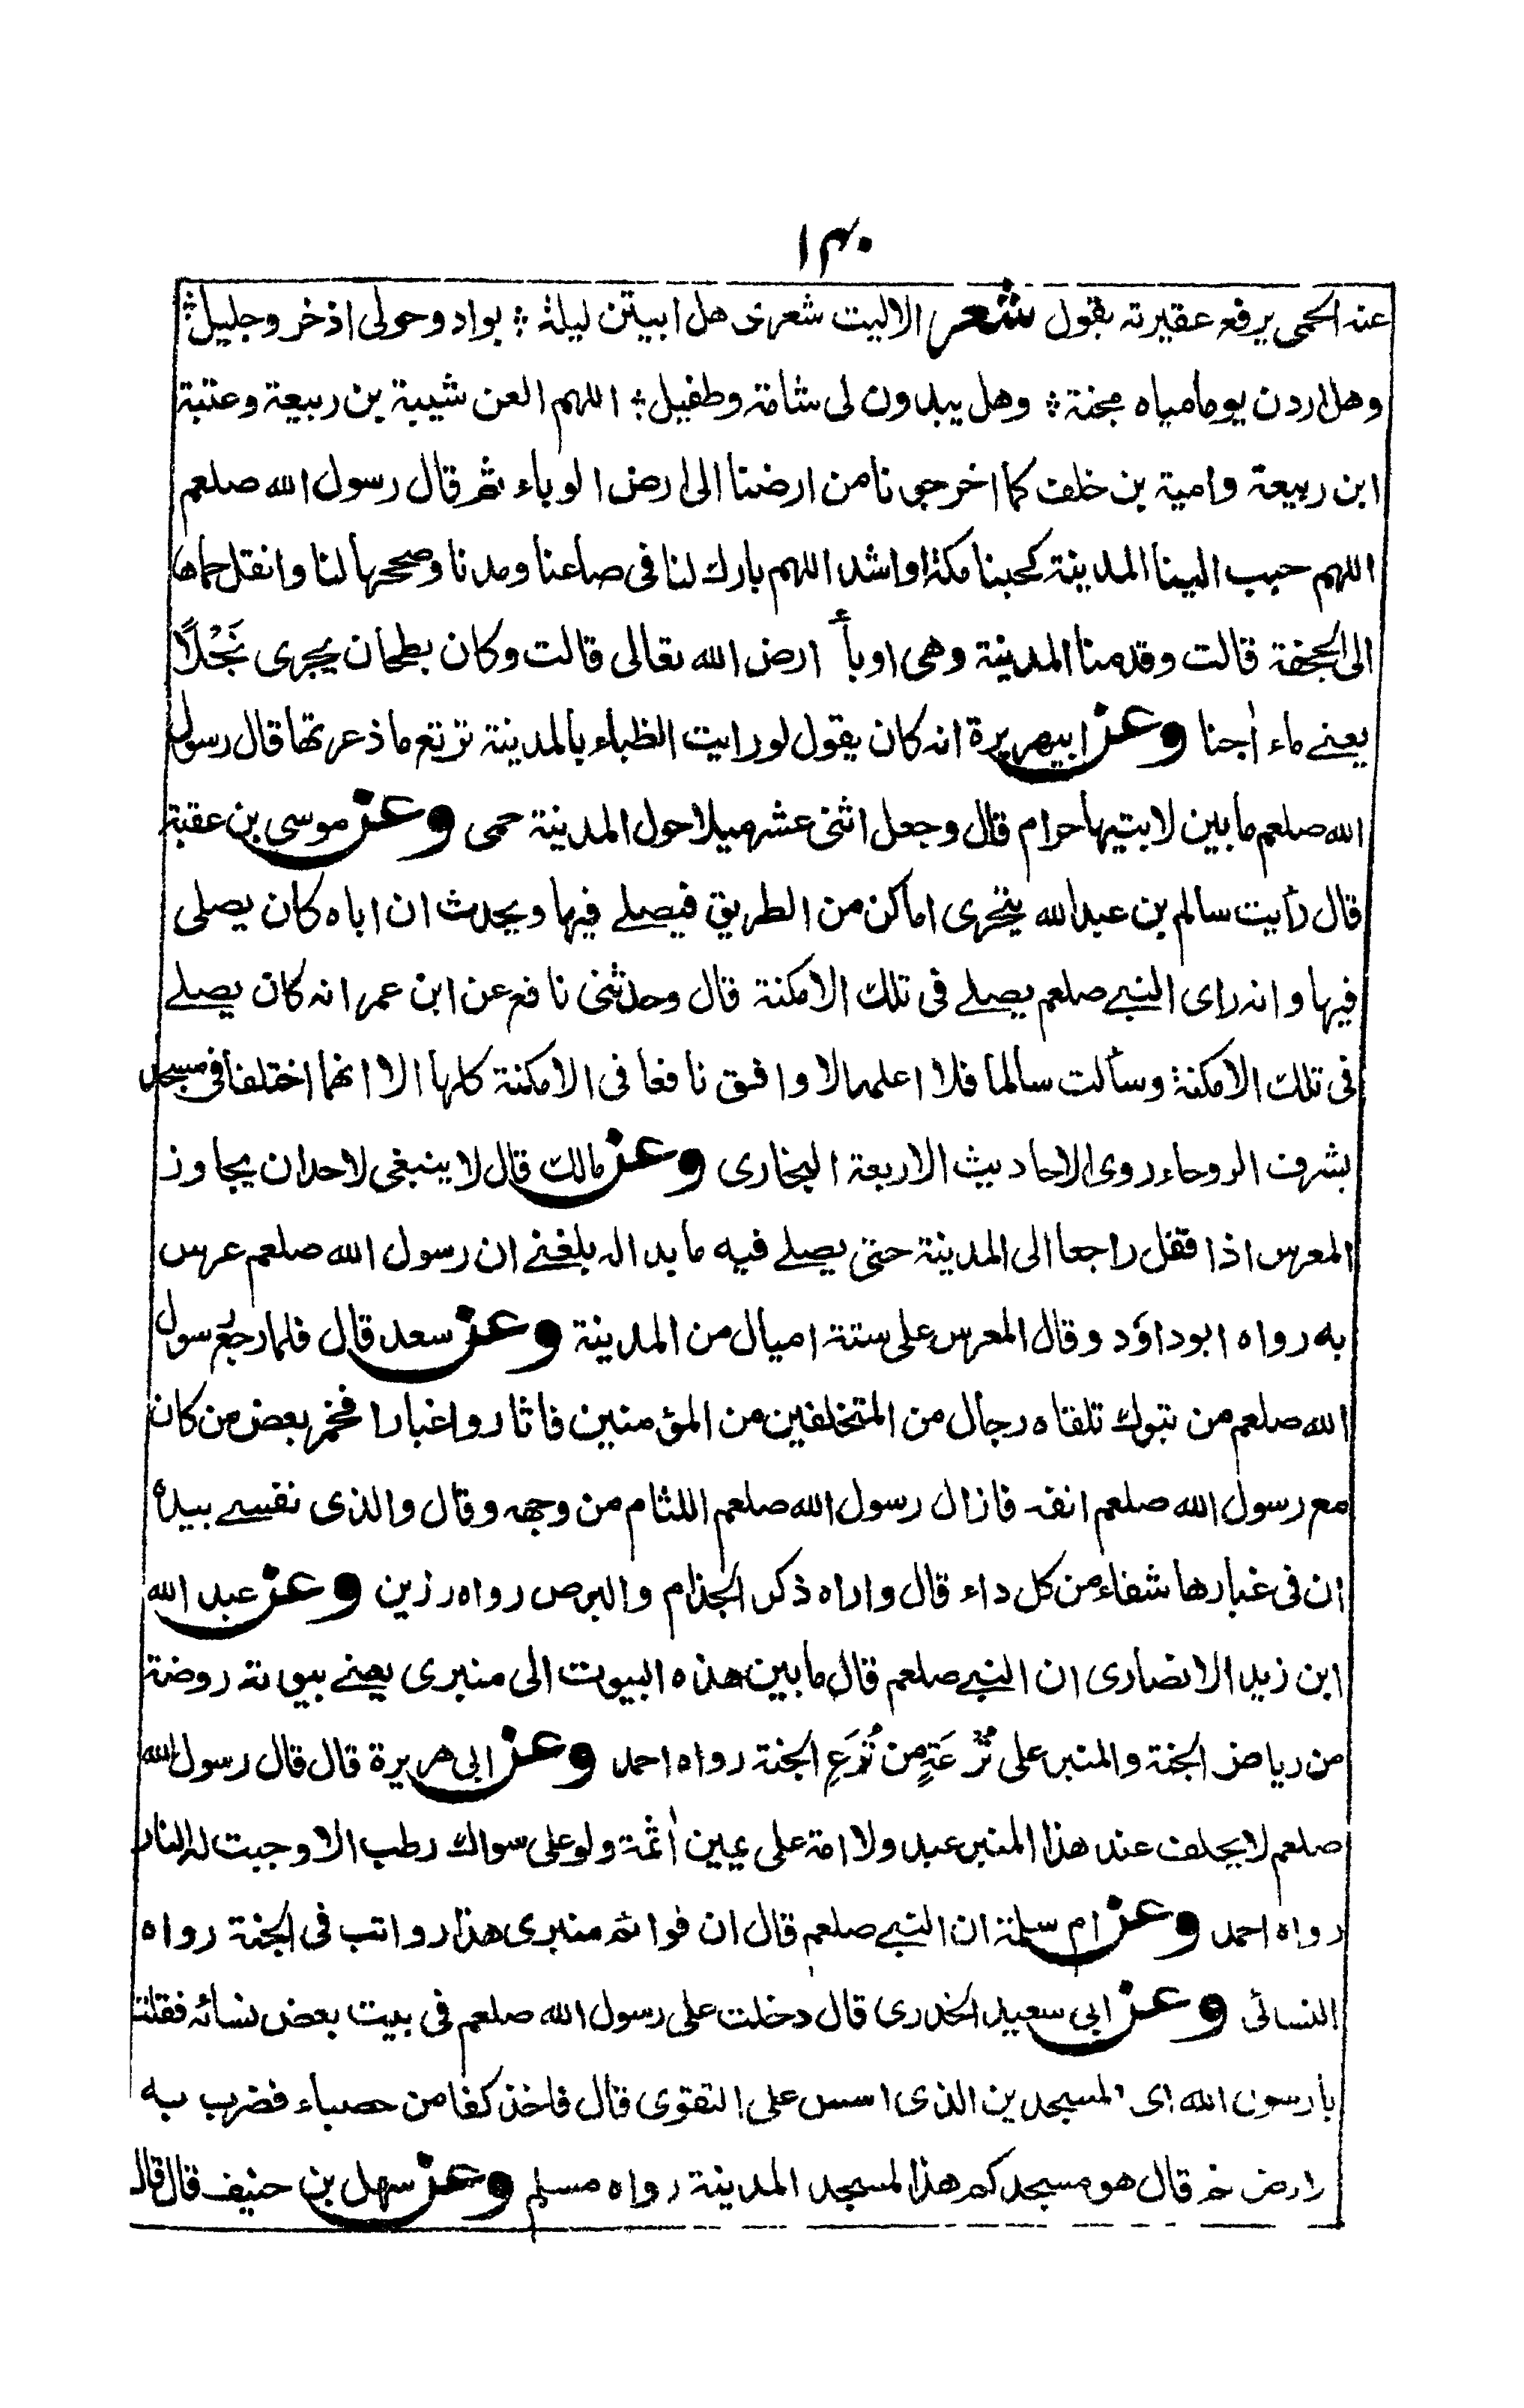 ۱۴۰
عنه الحمى يرفع عقيرته يقول شعر الا ليت شعرى هل ابيتن ليلة ؞ بواد وحولى اذخر وجليل ؞
وهل اردن يوما مياه مجنة ؞ وهل يبدون لى شامة وطفيل ؞ اللهم العن شيبة بن ربيعة وعتبة
ابن ربيعة وامية بن خلف كما اخرجونا من ارضنا الى ارض الوباء ثم قال رسول الله صلعم
اللهم حبب الينا المدينة كحبنا مكة او اشد اللهم بارك لنا فى صاعنا ومدنا وصححها لنا وانقل حماها
الى الجحفة قالت وقدمنا المدينة وهى اوبأ ارض الله تعالى قالت وكان بطحان يجرى نَجْلًا
يعنے ماء اٰجنا وعن ابيهريرة انه كان يقول لو رايت الظباء بالمدينة ترتع ما ذعرتها قال رسول
الله صلعم ما بين لابتيها حرام قال وجعل اثنى عشر ميلا حول المدينة حمى وعن موسى بن عقبة
قال رأيت سالم بن عبدالله يتحرى اماكن من الطريق فيصلے فيها ويحدث ان اباه كان يصلى
فيها وانه راى النبے صلعم يصلے فى تلك الامكنة قال وحدثنى نافع عن ابن عمر انه كان يصلے
فى تلك الامكنة وسألت سالما فلا اعلمه الا وافق نافعا فى الامكنة كلها الا انهما اختلفا فى مسجد
بشرف الروحاء روى الاحاديث الاربعة البخارى وعن مالك قال لا ينبغى لاحد ان يجاوز
المعرس اذا قفل راجعا الى المدينة حتى يصلے فيه ما بدا له بلغنے ان رسول الله صلعم عرس
به رواه ابوداؤد وقال المعرس على ستة اميال من المدينة وعن سعد قال فلما رجع رسول
الله صلعم من تبوك تلقاه رجال من المتخلفين من المؤمنين فاثاروا غبارا فخمر بعض من كان
مع رسول الله صلعم انفه فازال رسول الله صلعم اللثام من وجهه وقال والذى نفسے بيده
ان فى غبارها شفاء من كل داء قال واراه ذكر الجذام والبرص رواه رزين وعن عبد الله
ابن زيد الانصارى ان النبے صلعم قال ما بين هذه البيوت الى منبرى يعنے بيوته روضة
من رياض الجنة والمنبر على تُرْعَةٍ من تُرَعِ الجنة رواه احمد وعن ابى هريرة قال قال رسول الله
صلعم لا يحلف عند هذا المنبر عبد ولا امة على يمين اٰثمة ولو على سواك رطب الا وجبت له النار
رواه احمد وعن ام سلمة ان النبے صلعم قال ان قوائم منبرى هذا رواتب فى الجنة رواه
النسائى وعن ابى سعيد الخدرى قال دخلت على رسول الله صلعم فى بيت بعض نسائه فقلت
يا رسول الله اى المسجدين الذى اسس على التقوى قال فاخذ كفا من حصباء فضرب به
الارض ثم قال هو مسجدكم هذا لمسجد المدينة رواه مسلم وعن سهل بن حنيف قال قال